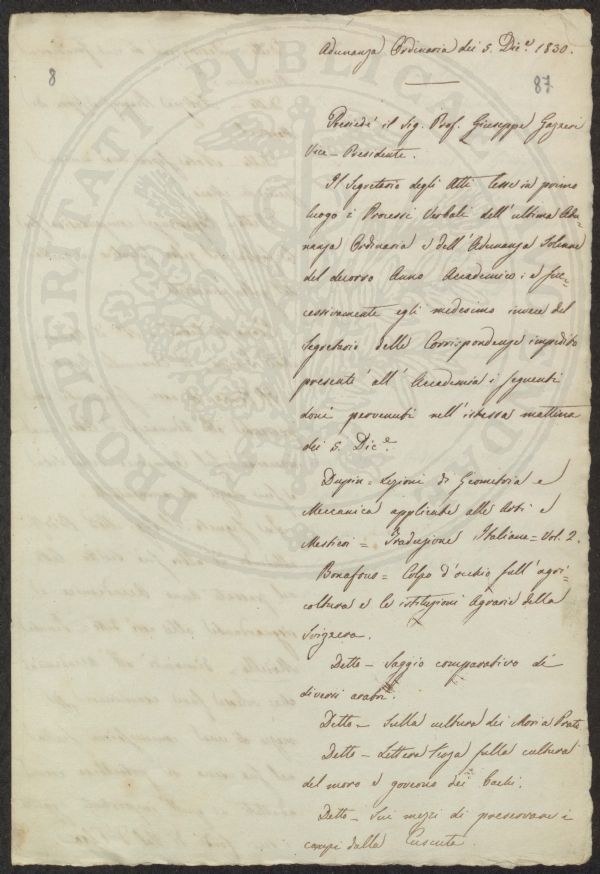 Adunanza Ordinaria dei 5. Dic.e 1830.
8
87
Presiedè il Sig. Prof. Giuseppe Gazzeri
Vice-Presidente.
Il Segretario degli Atti lesse in primo
luogo i Processi Verbali dell'ultima Adu-
nanza Ordinaria e dell'Adunanza Solenne
del decorso Anno Accademico; e suc-
cessivamente egli medesimo invece del
Segretario delle Corrispondenze impedito
presentò all'Accademia i seguenti
doni pervenuti nell'istessa mattina
dei 5. Dic.e
Dupin = Lezioni di Geometria e
Meccanica applicate alle Arti e
Mestieri = Traduzione Italiana = Vol. 2.
Bonafous = Colpo d'occhio sull'agri-
coltura e le istituzioni Agrarie della
Svizzera.
Detto - Saggio comparativo di
diversi aratri.
Detto - Sulla cultura dei Mori a Prato
Detto - Lettera sulla cultura
del moro e governo dei Bachi.
Detto - Sui mezzi di preservare i
campi dalla Cuscuta.
PROSPERITATI PUBLICAE AUGENDAE